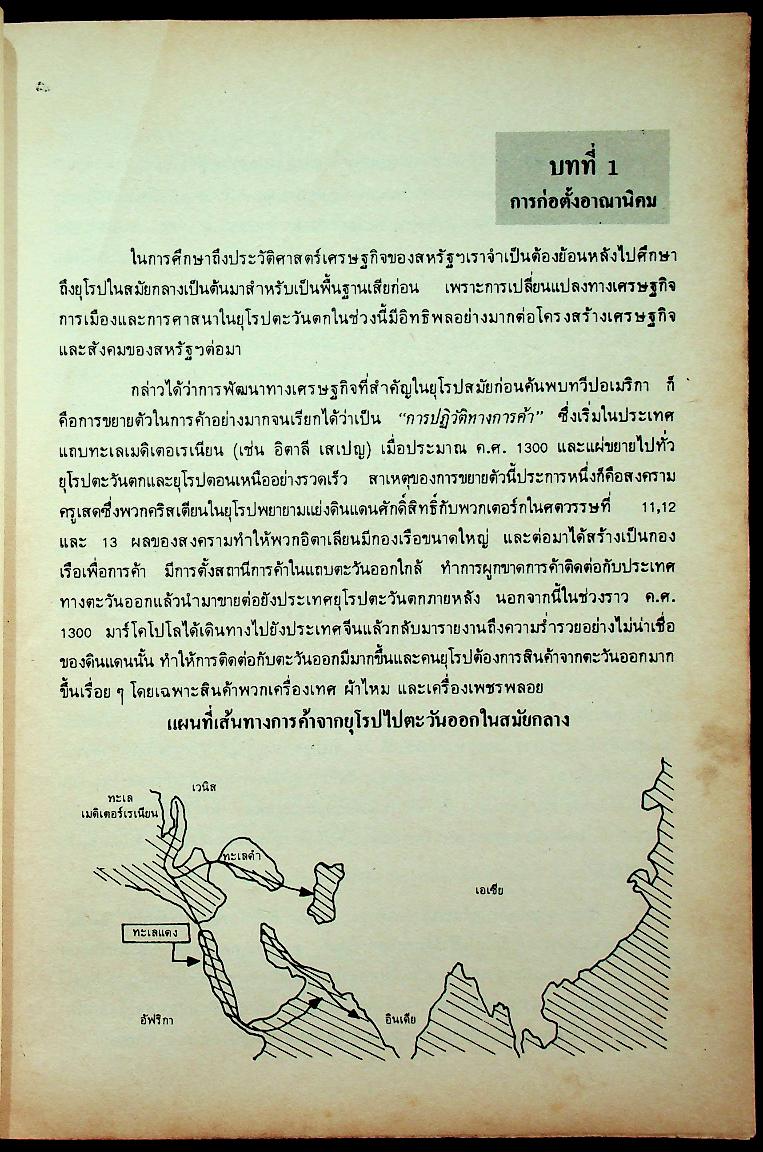 บทที่ 1
การก่อตั้งอาณานิคม
ในการศึกษาถึงประวัติศาสตร์เศรษฐกิจของสหรัฐฯเราจำเป็นต้องย้อนหลังไปศึกษา
ถึงยุโรปในสมัยกลางเป็นต้นมาสำหรับเป็นพื้นฐานเสียก่อน เพราะการเปลี่ยนแปลงทางเศรษฐกิจ
การเมืองและการศาสนาในยุโรปตะวันตกในช่วงนี้มีอิทธิพลอย่างมากต่อโครงสร้างเศรษฐกิจ
และสังคมของสหรัฐฯต่อมา
กล่าวได้ว่าการพัฒนาทางเศรษฐกิจที่สำคัญในยุโรปสมัยก่อนค้นพบทวีปอเมริกา ก็
คือการขยายตัวในการค้าอย่างมากจนเรียกได้ว่าเป็น “การปฏิวัติทางการค้า” ซึ่งเริ่มในประเทศ
แถบทะเลเมดิเตอเรเนียน (เช่น อิตาลี สเปญ) เมื่อประมาณ ค.ศ. 1300 และแผ่ขยายไปทั่ว
ยุโรปตะวันตกและยุโรปตอนเหนืออย่างรวดเร็ว สาเหตุของการขยายตัวนี้ประการหนึ่งก็คือสงคราม
ครูเสดซึ่งพวกคริสเตียนในยุโรปพยายามแย่งดินแดนศักดิ์สิทธิ์กับพวกเตอร์กในศตวรรษที่ 11,12
และ 13 ผลของสงครามทำให้พวกอิตาเลียนมีกองเรือขนาดใหญ่ และต่อมาได้สร้างเป็นกอง
เรือเพื่อการค้า มีการตั้งสถานีการค้าในแถบตะวันออกใกล้ ทำการผูกขาดการค้าติดต่อกับประเทศ
ทางตะวันออกแล้วนำมาขายต่อยังประเทศยุโรปตะวันตกภายหลัง นอกจากนี้ในช่วงราว ค.ศ.
1300 มาร์โคโปโลได้เดินทางไปยังประเทศจีนแล้วกลับมารายงานถึงความร่ำรวยอย่างไม่น่าเชื่อ
ของดินแดนนั้น ทำให้การติดต่อกับตะวันออกมีมากขึ้นและคนยุโรปต้องการสินค้าจากตะวันออกมาก
ขึ้นเรื่อย ๆ โดยเฉพาะสินค้าพวกเครื่องเทศ ผ้าไหม และเครื่องเพชรพลอย
แผนที่เส้นทางการค้าจากยุโรปไปตะวันออกในสมัยกลาง
เวนิส
ทะเล
เมดิเตอร์เรเนียน
ทะเลดำ
เอเซีย
ทะเลแดง
อัฟริกา
อินเดีย